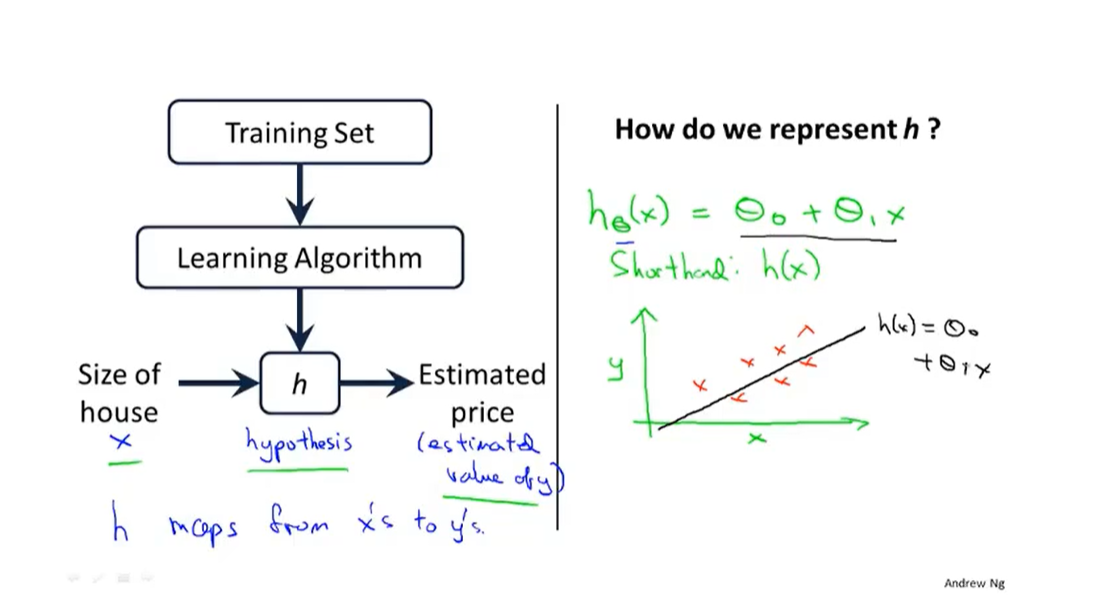 Training Set
Learning Algorithm
Size of
house
h
Estimated
price
x
hypothesis
(estimated
value of y)
h maps from x's to y's.
How do we represent h ?
hθ(x) = θ₀ + θ₁x
Shorthand: h(x)
y
x
h(x) = θ₀
+ θ₁x
Andrew Ng